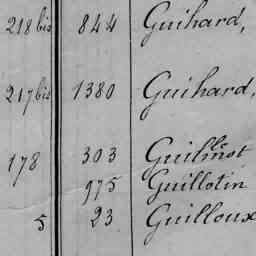 218 bis 844 Guihard,
217 bis 1380 Guihard,
178 303 Guilinot
975 Guillotin
5 23 Guilloux